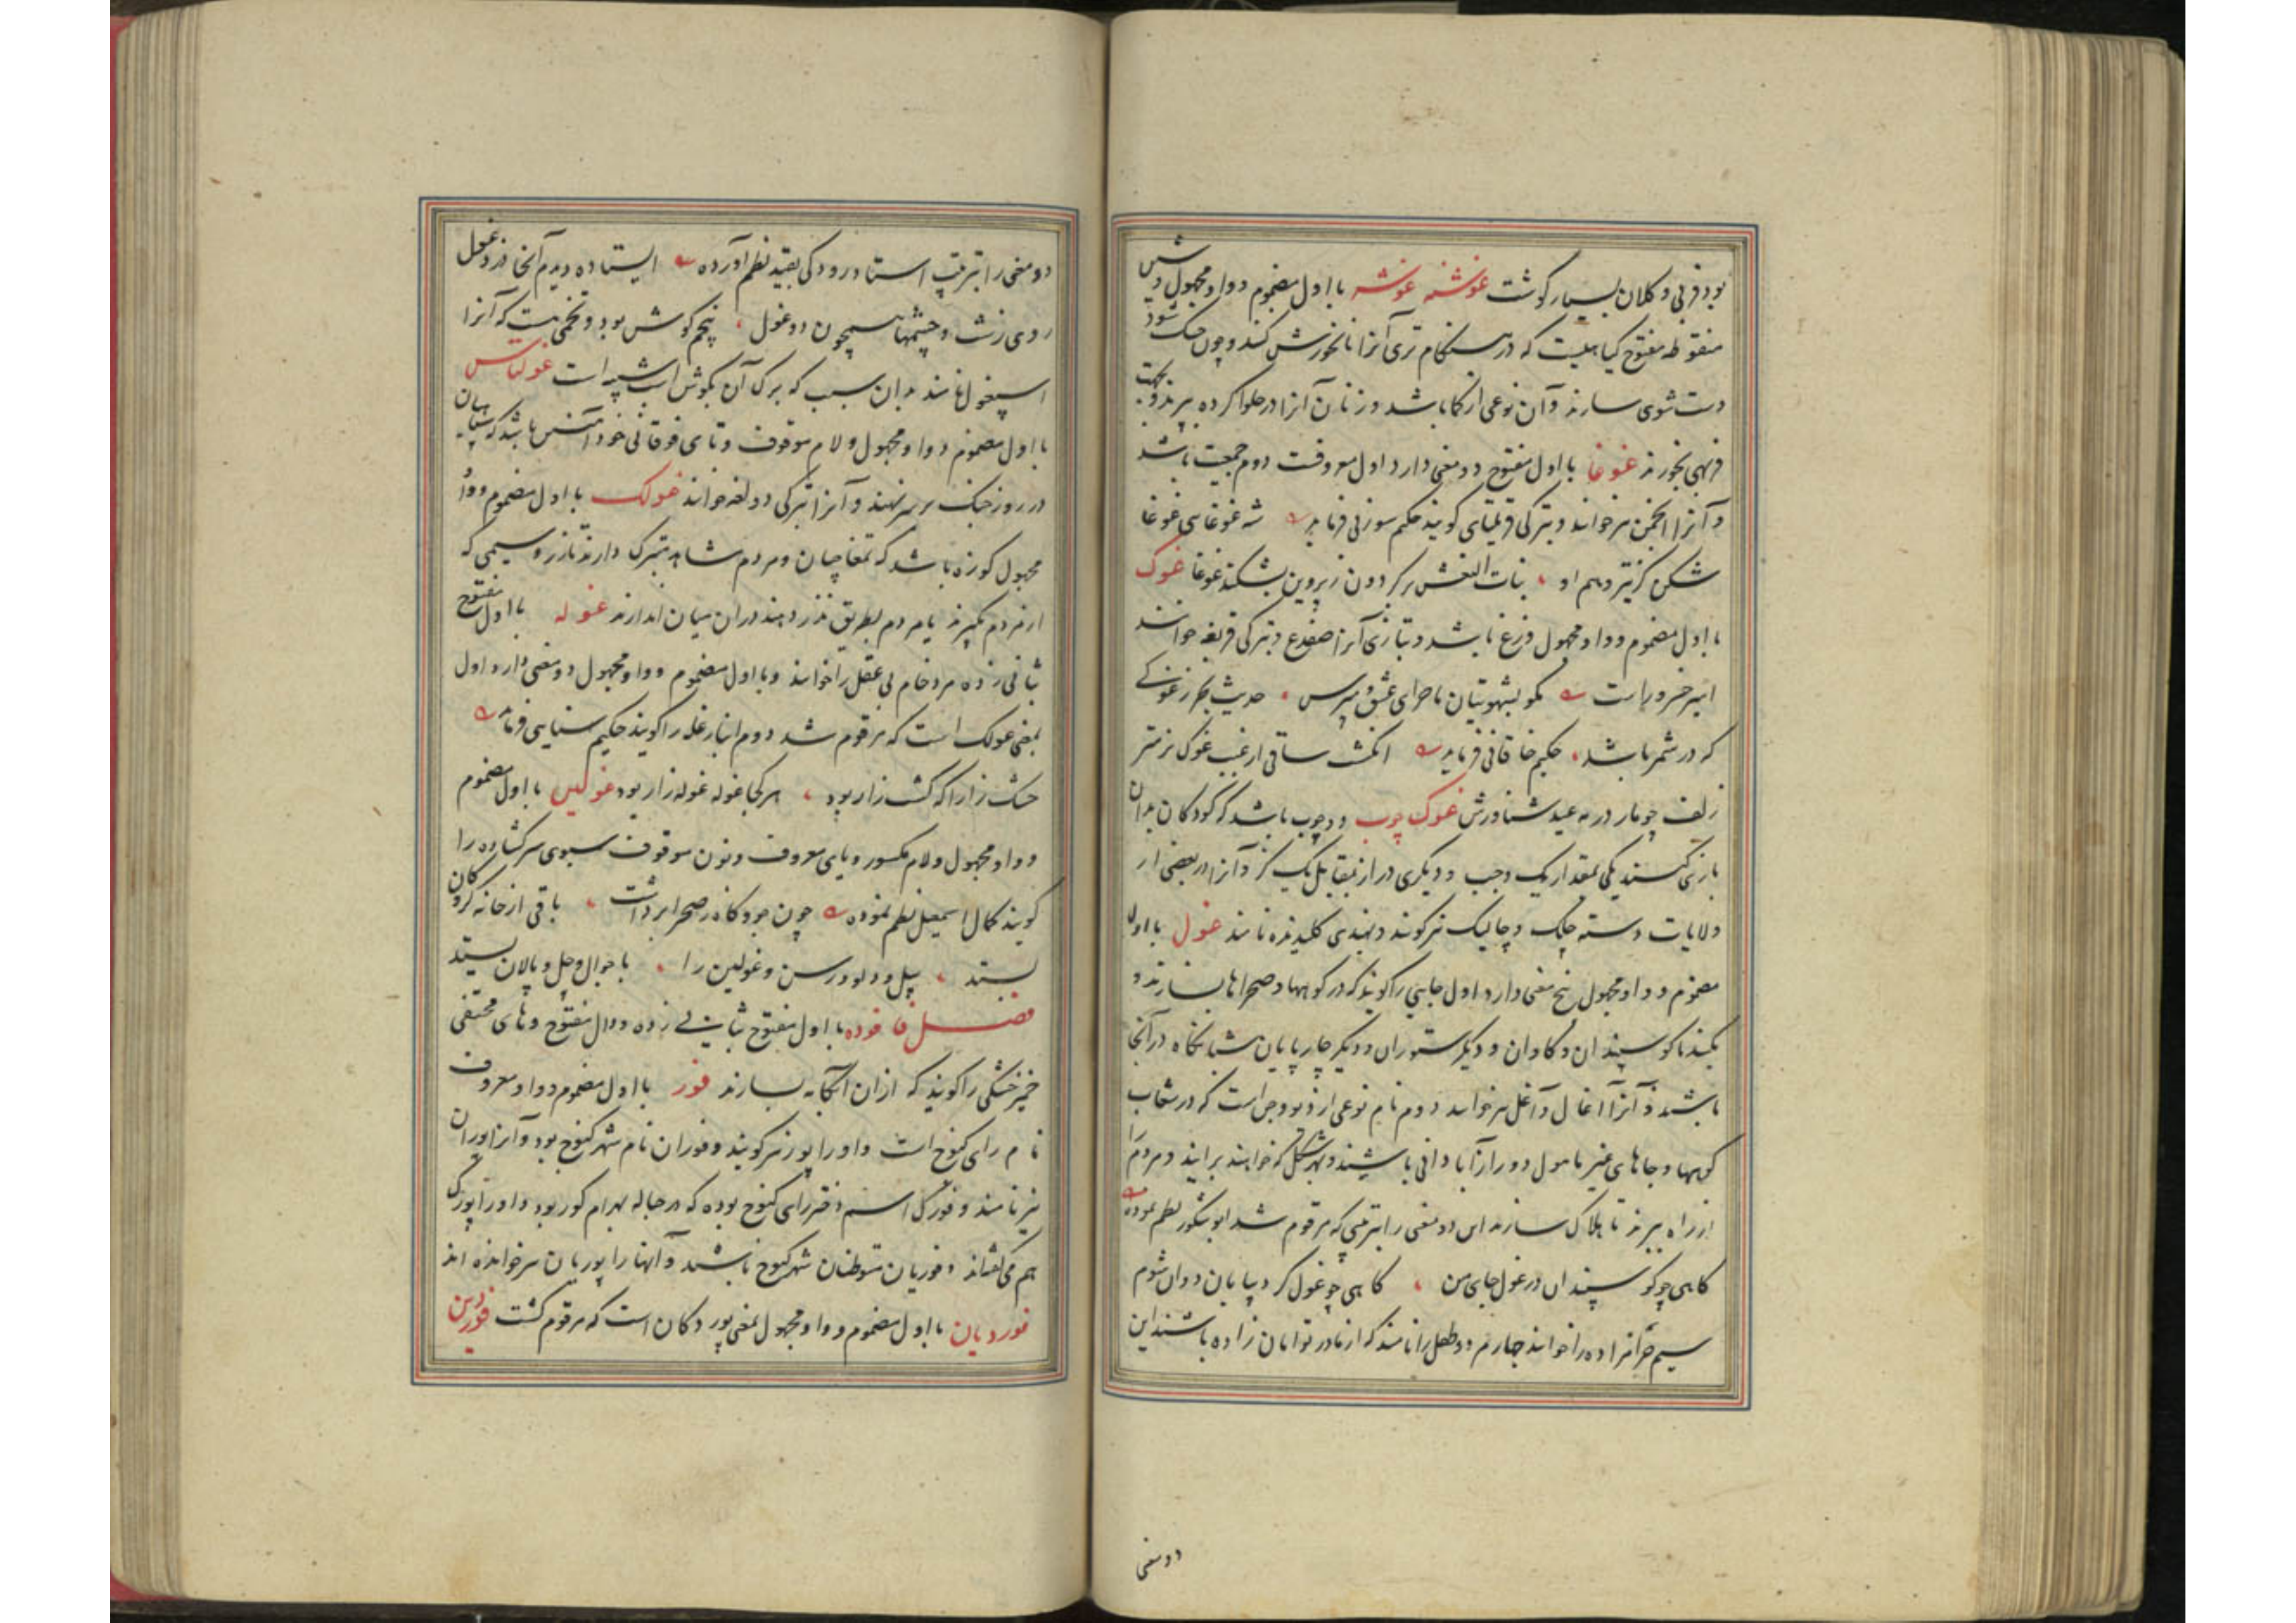 بود فربی و کلان بسیار گوشت غوشنه غوشه با اول مضموم و واو مجهول و شین
منقوطه مفتوح گیاهیست که در هنگام تری آنرا نانخورش کنند و چون خشک شود
دست شوی سازند و آن نوعی از کما باشد و زنان آنرا در حلوا کرده بپزند و بجهت
فربهی بخورند غوغا با اول مفتوح دو معنی دارد اول معروفست دوم جمعیت باشد
و آنرا انجمن نیز خوانند و بترکی قرلتای گویند حکیم سوزنی فرماید شه غوغاسی غوغا
شکن کزتیر و سهم او بنات النعش بر گردون ز پروین بشکند غوغا غوک
با اول مضموم و واو مجهول وزغ باشد و بتازی آنرا ضفدع و بترکی قربغه خوانند
امیر خسرو راست مگو بشهوتیان ماجرای عشق و مپرس حدیث بحر ز غوکی
که در شمر باشد حکیم خاقانی فرماید انگشت ساقی از غبب غوک نرمتر
زلف چو مار در می عید شناورش غوک چوب دو چوب باشد که کودکان بدان
بازی کنند یکی بمقدار یک وجب و دیگری دراز بمقابل یک گز و آنرا در بعضی از
ولایات دسته چلک و چالیک نیز گویند و بهندی کلید نده نامند غول با اول
مضموم و واو مجهول پنج معنی دارد اول جایی را گویند که در کوهها و صحراها بسازند و
بکنند تا گوسپندان و گاوان و دیگر ستوران و دیگر چارپایان شبانگاه در آنجا
باشند و آنرا آغال و آغل نیز خوانند دوم نام نوعی از دیو و جن است که در شعاب
کوهها و جاهای غیر مامول دور از آبادانی باشند و بهر شکل که خواهند برایند و مردم را
از راه ببرند تا هلاک سازند این دو معنی را بترتیبی که مرقوم شد ابوشکور نظم نموده
گاهی چو گوسپندان در غول جای من گاهی چو غول گرد بیابان دوان شوم
سیم حرامزاده را خوانند چهارم دو طفل را نامند که از مادر توامان زاده باشند این
دو معنی
دو معنی را بترتیب استاد رودکی بقید نظم آورده ایستاده دیدم آنجا دزد و غول
روی زشت و چشمها همچون دو غول پنجم گوش بود و تخمی هست که آنرا
اسپغول نامند بدان سبب که برگ آن بگوش اسب شبیه است غولتاس
با اول مضموم و واو مجهول و لام موقوف و تای فوقانی خود آهنین باشد که سپاهیان
در روز جنگ بر سر نهند و آنرا بترکی دولغه خوانند غولک با اول مضموم و واو
مجهول کوزه باشد که تمغاچیان و مردم مشاهد متبرک دارند تا زر و سیمی که
از مردم بگیرند یا مردم بطریق نذر دهند در آن میان اندازند غوله با اول مفتوح
بثانی زده مرد خام بی عقل را خوانند و با اول مضموم و واو مجهول دو معنی دارد اول
بمعنی غولک است که مرقوم شد دوم انبار غله را گویند حکیم سنایی فرماید
خشک زارا که کشت زار بود هر کجا غوله غوله زار بود غولین با اول مضموم
و واو مجهول و لام مکسور و یای معروف و نون موقوف سبوی سر گشاده را
گویند کمال اسمعیل نظم نموده چون جو و کاه ز صحرا برداشت باقی از خانه گروگان
بستد بیل و دلو و رسن و غولین را با جوال و جل و پالان بستد
فصل فا فوده با اول مفتوح بثانی زده و دال مفتوح و های مختفی
خمیر خشکی را گویند که از ان آبکامه سازند فور با اول مضموم و واو معروف
نام رای کنوج است و او را پور نیز گویند و فوران نام شهر کنوج بود و آنرا پوران
نیز نامند و فورک اسم دختر رای کنوج بوده که در حباله بهرام گور بود و او را پورک
هم می گفتند و فوریان متوطنان شهر کنوج باشند و آنها را پوریان نیز خوانده اند
فوردیان با اول مضموم و واو مجهول بمعنی پوردکان است که مرقوم گشت فوردین